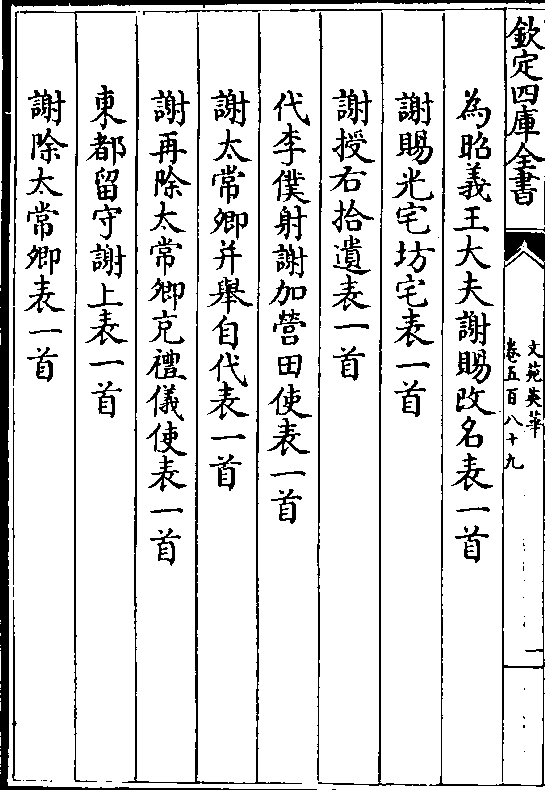 欽定四庫全書
文苑英華
卷五百八十九
一
為昭義王大夫謝賜改名表一首
謝賜光宅坊宅表一首
謝授右拾遺表一首
代李僕射謝加營田使表一首
謝太常卿并舉自代表一首
謝再除太常卿充禮儀使表一首
東都留守謝上表一首
謝除太常卿表一首